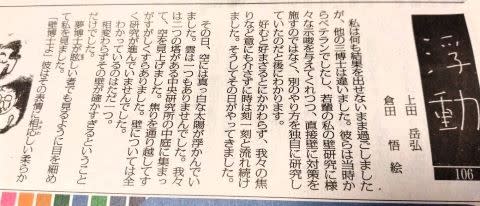 浮動
上田 岳弘
倉田 悟 絵
106
私は何も結果を出せないまま過ごしました
が、他の三博士は違いました。彼らは当時か
らベテランでしたし、若輩の私の壁研究に様
々な示唆を与えてくれつつ、直接壁に対策を
施すのではなく、別のやり方を独自に研究し
ていたのだと後にわかります。
好むと好まざるとにかかわらず、我々の焦
りなど意にも介さずに時は刻一刻と流れ続け
ました。そうしてその日がやってきました。
その日、空には真っ白な太陽が浮かんでい
ました。雲は一つもありませんでした。我々
は二つの塔がある中央研究所の中庭に集まっ
て、空を見上げました。焦りを通り越してす
がすがしくすらありました。壁については全
く研究が進んでいませんでした。
わかっているのはただ一つ。
相変わらずその壁が確かすぎるということ
だけでした。
夢博士が眩しい者でも見るように目を細め
て私を見ました。
「壁博士よ」彼はその表情に相応しい柔らか